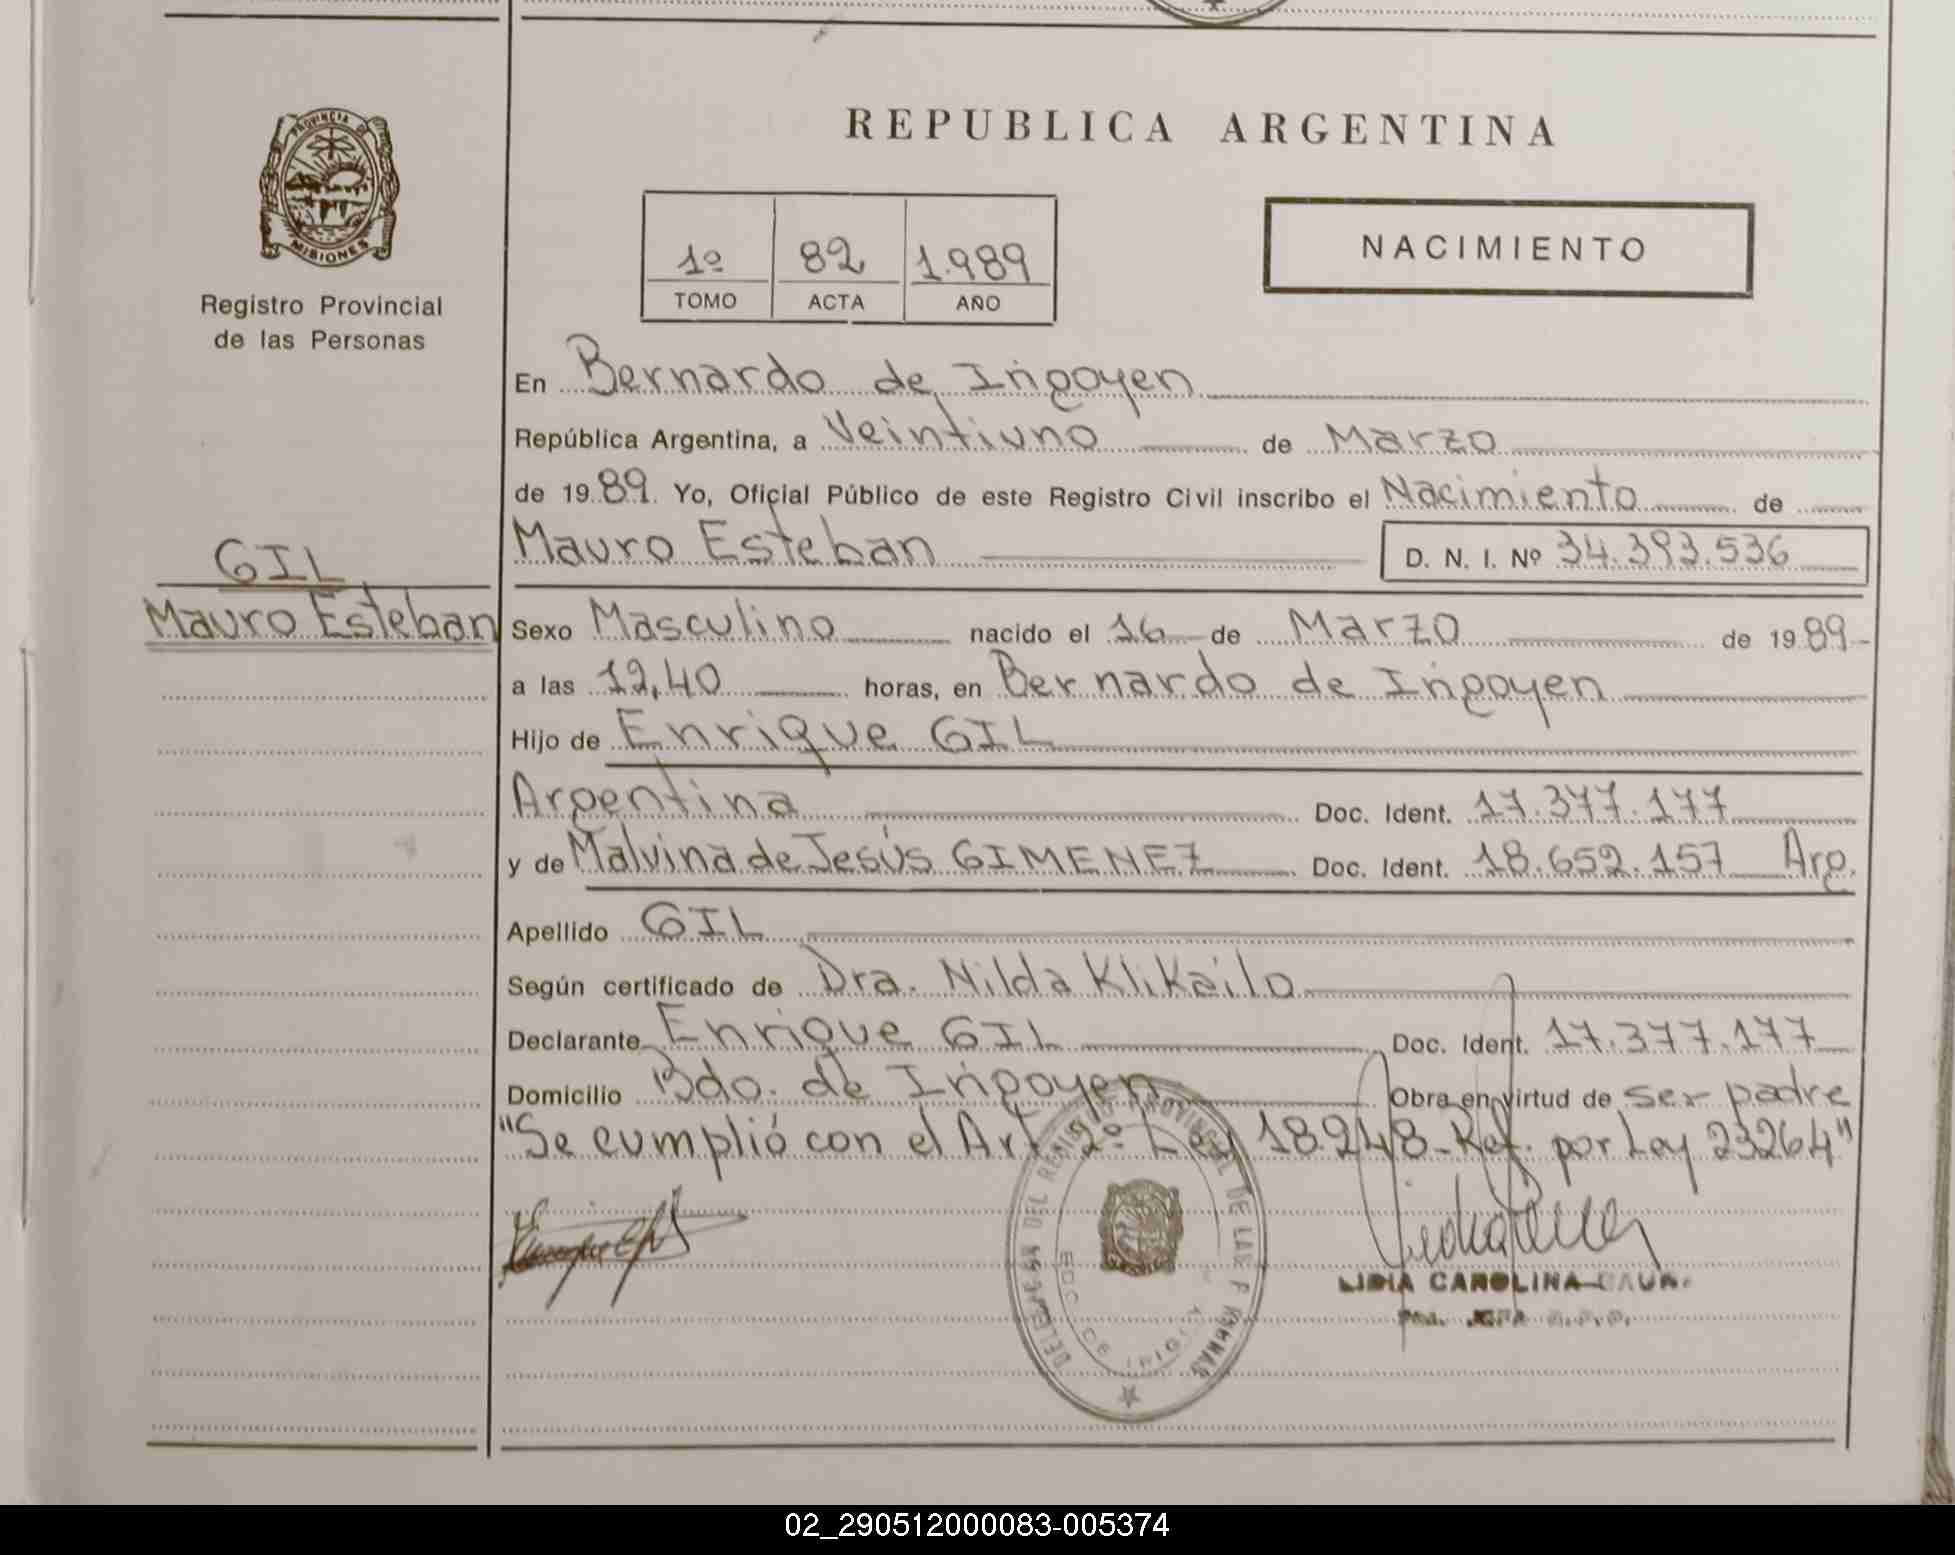 PROVINCIA DE
MISIONES
Registro Provincial
de las Personas
GIL
Mauro Esteban
REPUBLICA ARGENTINA
1º 82 1.989
TOMO ACTA AÑO
NACIMIENTO
En Bernardo de Irigoyen
República Argentina, a Veintiuno de Marzo
de 1989. Yo, Oficial Público de este Registro Civil inscribo el Nacimiento de
Mauro Esteban D. N. I. Nº 34.393.536
Sexo Masculino nacido el 16 de Marzo de 1989
a las 12,40 horas, en Bernardo de Irigoyen
Hijo de Enrique GIL
Argentina Doc. Ident. 17.377.177
y de Malvina de Jesús GIMENEZ Doc. Ident. 18.652.157 Arg.
Apellido GIL
Según certificado de Dra. Nilda Klikailo
Declarante Enrique GIL Doc. Ident. 17.377.177
Domicilio Bdo. de Irigoyen Obra en virtud de ser padre
"Se cumplió con el Art 2º Ley 18.248-Ref. por Ley 23264"
DEL REGISTRO PROVINCIAL DE LAS
LIDIA CAROLINA
02_290512000083-005374